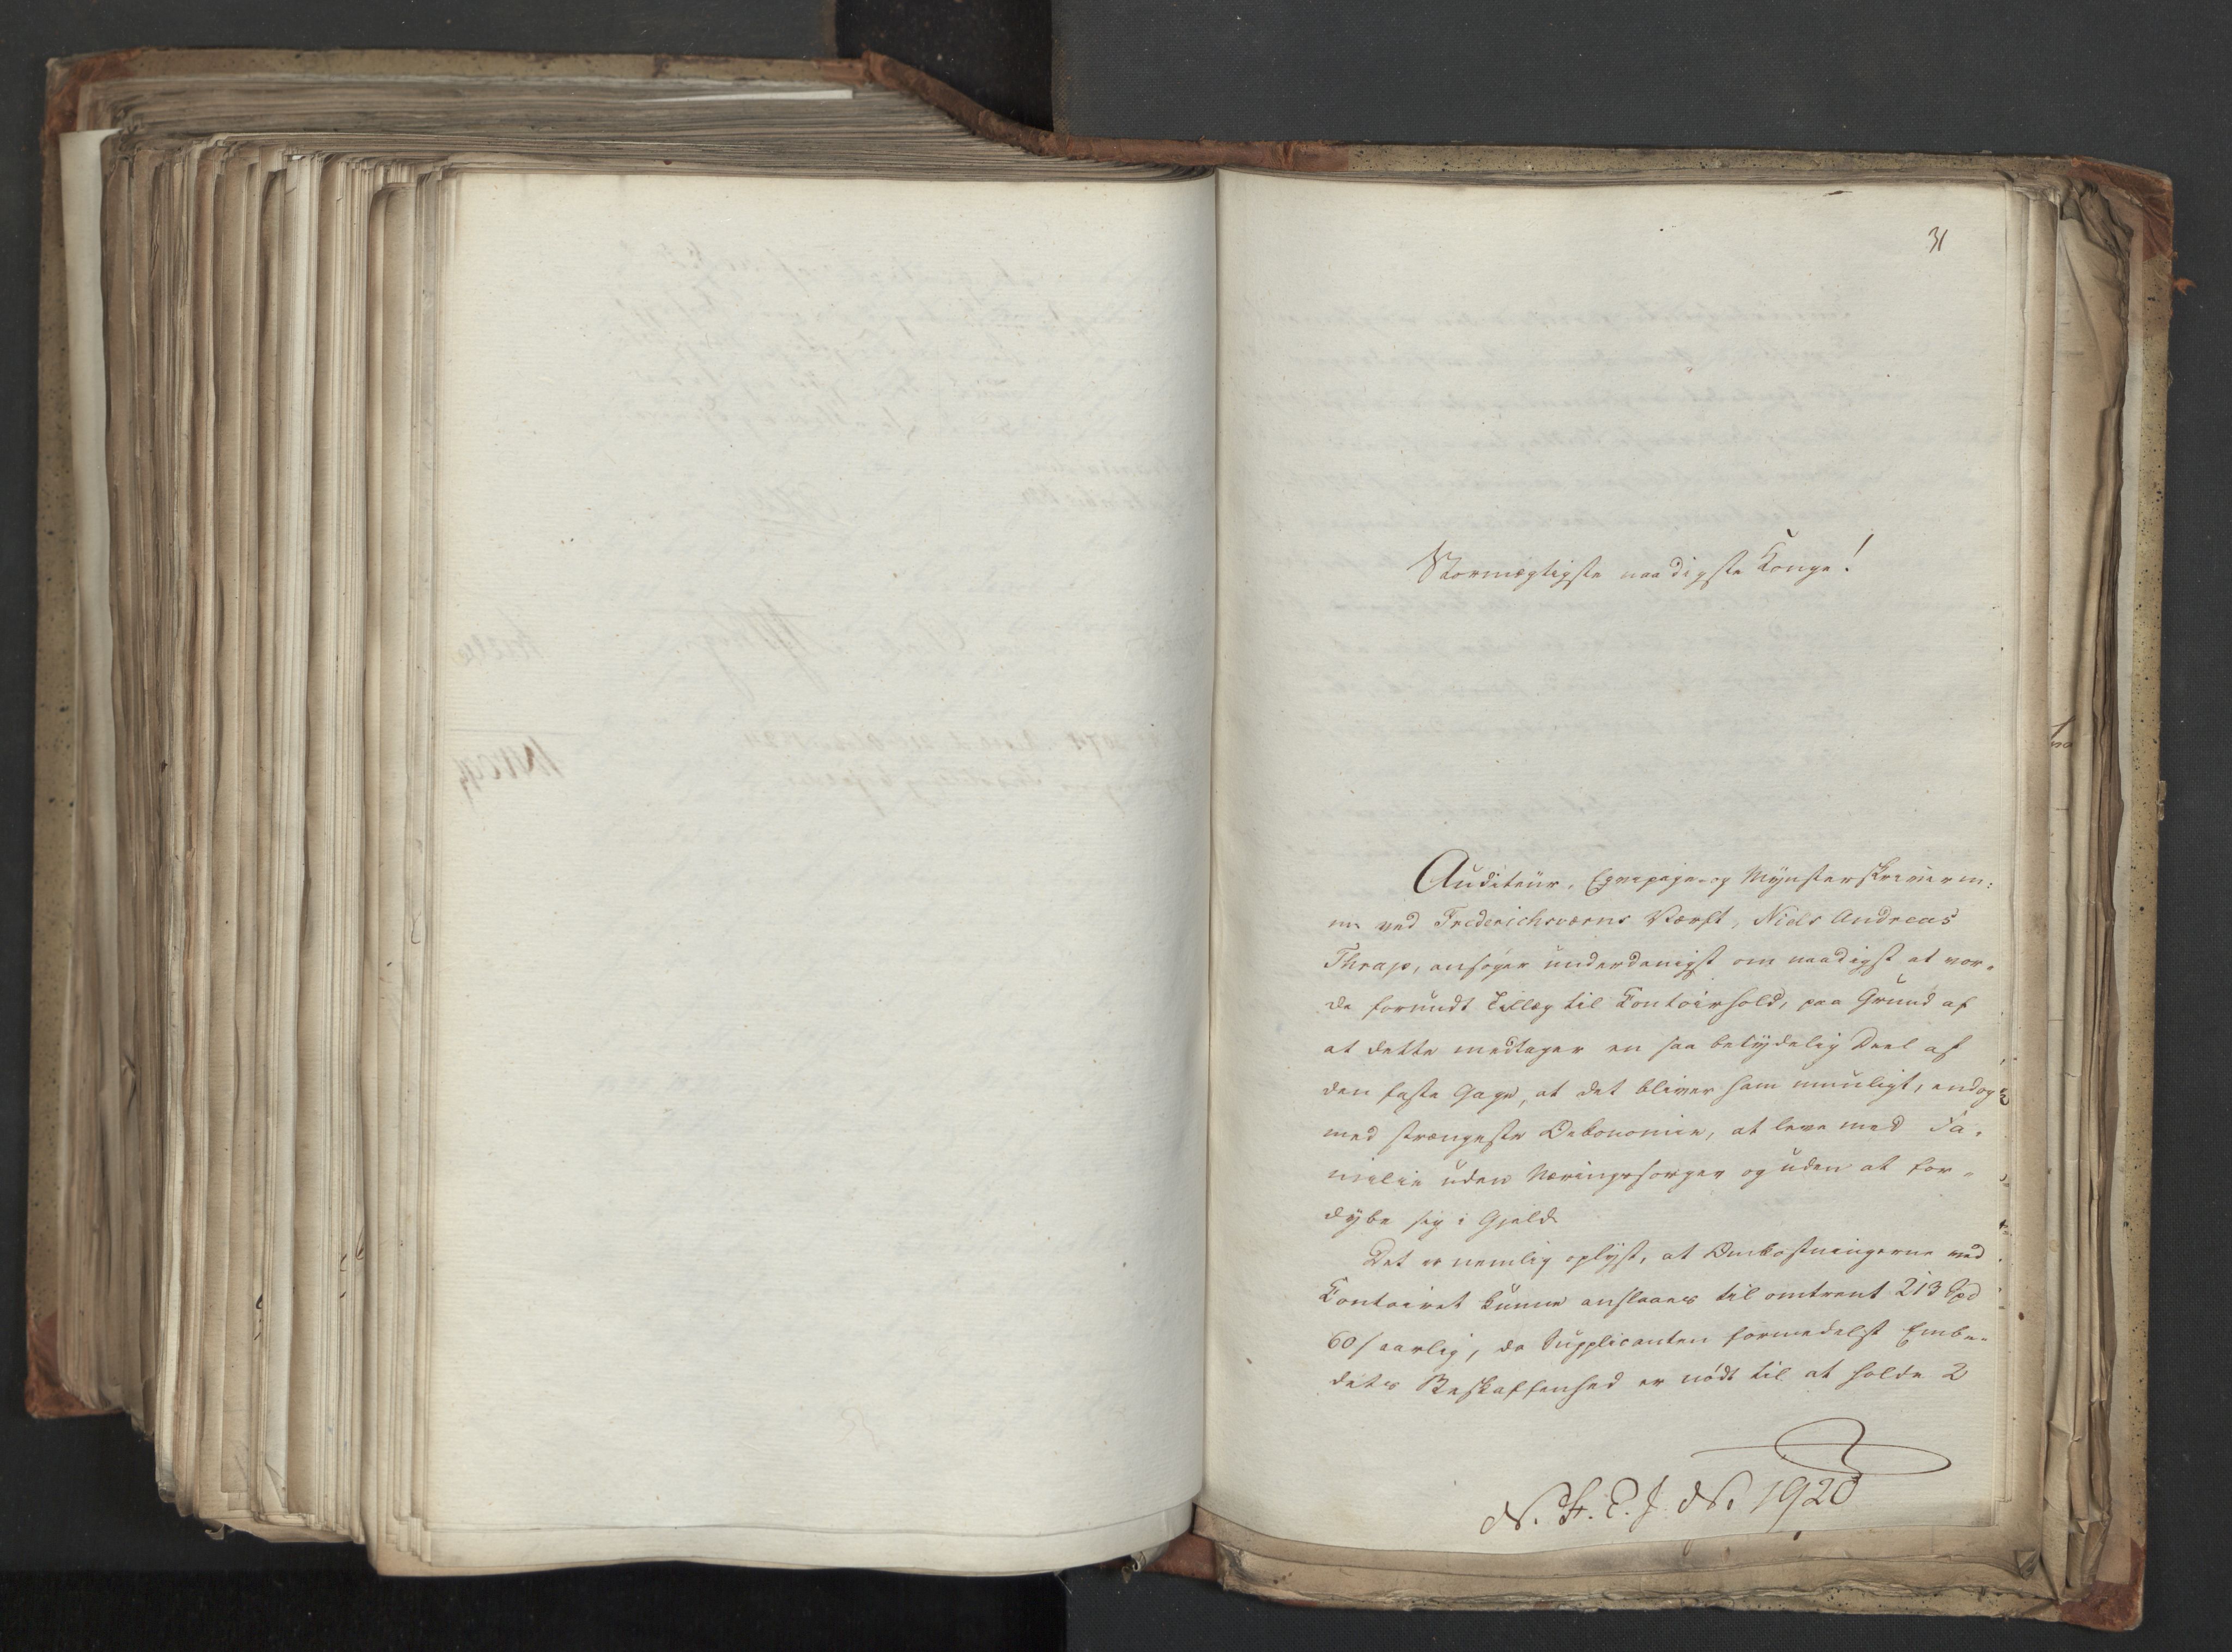 31
Stormægtigste naadigste Konge!
Auditeur, Eqvipage- og Mynsterskriveren:
en ved Frederichsværns Værft, Niels Andreas
Thrap, ansøger underdanigst om naadigst at vor-
de forundt Tillæg til Contoirhold, paa Grund af
at dette medtager en saa betydelig Deel af
den faste Gage, at det bliver ham umuligt, endog
med strængeste Oekonomie, at leve med Fa-
milie uden Næringssorger og uden at for-
dybe sig i Gjeld
Det er nemlig oplyst, at Omkostningerne ved
Contoiret kunne anslaaes til omtrent 213 Spd
60 s aarlig, da Supplicanten formedelst Embe-
dets Beskaffenhed er nødt til at holde 2
N. H. C. J. No 1920